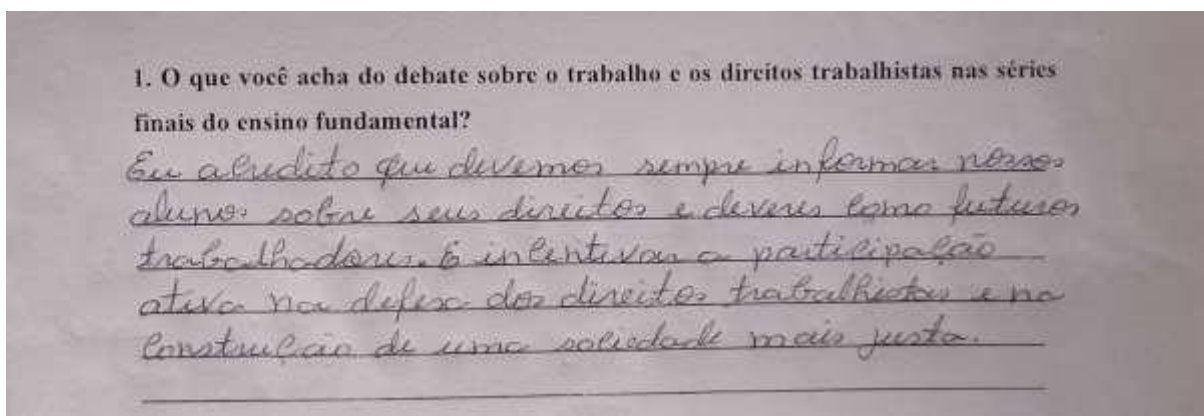 1. O que você acha do debate sobre o trabalho e os direitos trabalhistas nas séries
finais do ensino fundamental?
Eu acredito que devemos sempre informar nossos
alunos sobre seus direitos e deveres como futuros
trabalhadores. E incentivar a participação
ativa na defesa dos direitos trabalhistas e na
construção de uma sociedade mais justa.